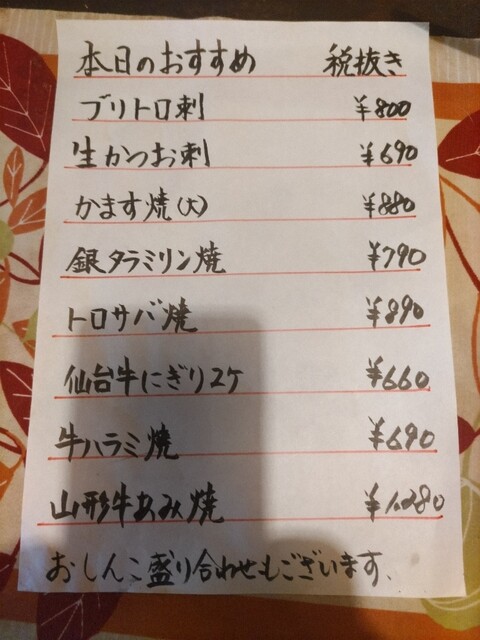 本日のおすすめ 税抜き
ブリトロ刺 ¥800
生かつお刺 ¥690
かます焼(大) ¥880
銀タラミリン焼 ¥790
トロサバ焼 ¥890
仙台牛にぎり2ケ ¥660
牛ハラミ焼 ¥690
山形牛あみ焼 ¥1.280
おしんこ盛り合わせもございます、